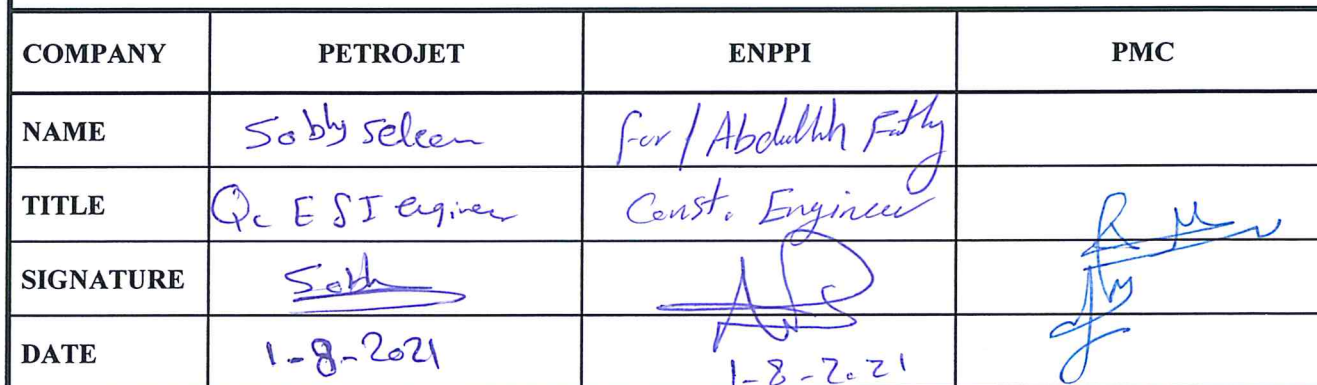 COMPANY PETROJET ENPPI PMC
NAME Sobhy seleem for / Abdullah Fathy
TITLE Qc E&I engineer Const. Engineer
SIGNATURE Sobh
DATE 1-8-2021 1-8-2021